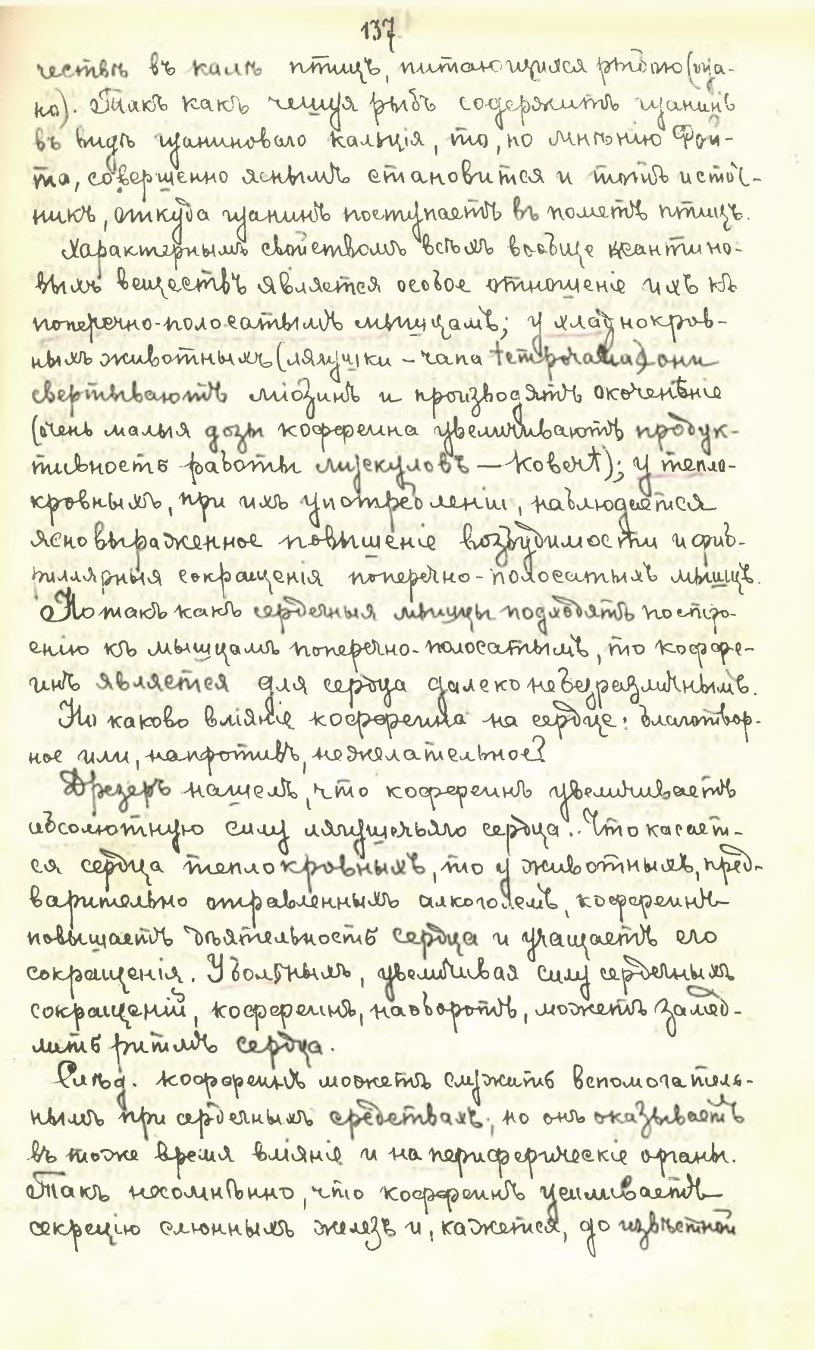 137
чествѣ въ калѣ птицъ, питающихся рыбою (гуа-
но). Такъ какъ чешуя рыбъ содержитъ гуанинъ
въ видѣ гуаниноваго кальція, то, по мнѣнію Фой-
та, совершенно яснымъ становится и тотъ источ-
никъ, откуда гуанинъ поступаетъ въ пометъ птицъ.
Характернымъ свойствомъ всѣхъ вообще ксантино-
выхъ веществъ является особое отношеніе ихъ къ
поперечно-полосатымъ мышцамъ; у хладнокров-
ныхъ животныхъ (лягушки – чапа temporaria) они
свертываютъ міозинъ и производятъ окоченѣніе
(очень малыя дозы коффеина увеличиваютъ продук-
тивность работы мускуловъ — Kobert); у тепло-
кровныхъ, при ихъ употребленіи, наблюдается
ясно выраженное повышеніе возбудимости и фиб-
риллярныя сокращенія поперечно-полосатыхъ мышцъ.
Но такъ какъ сердечныя мышцы подходятъ по стро-
енію къ мышцамъ поперечно-полосатымъ, то коффе-
инъ является для сердца далеко небезразличнымъ.
Но каково вліяніе коффеина на сердце: благотвор-
ное или, напротивъ, нежелательное?
Дрезеръ нашелъ, что коффеинъ увеличиваетъ
абсолютную силу лягушечьяго сердца. Что касает-
ся сердца теплокровныхъ, то у животныхъ, пред-
варительно отравленныхъ алкоголемъ, коффеинъ
повышаетъ дѣятельность сердца и учащаетъ его
сокращенія. У больныхъ, увеличивая силу сердечныхъ
сокращеній, коффеинъ, наоборотъ, можетъ замед-
лить ритмъ сердца.
Слѣд. коффеинъ можетъ служить вспомогатель-
нымъ при сердечныхъ средствахъ, но онъ оказываетъ
въ тоже время вліяніе и на периферическіе органы.
Такъ несомнѣнно, что коффеинъ усиливаетъ
секрецію слюнныхъ железъ и, кажется, до извѣстной